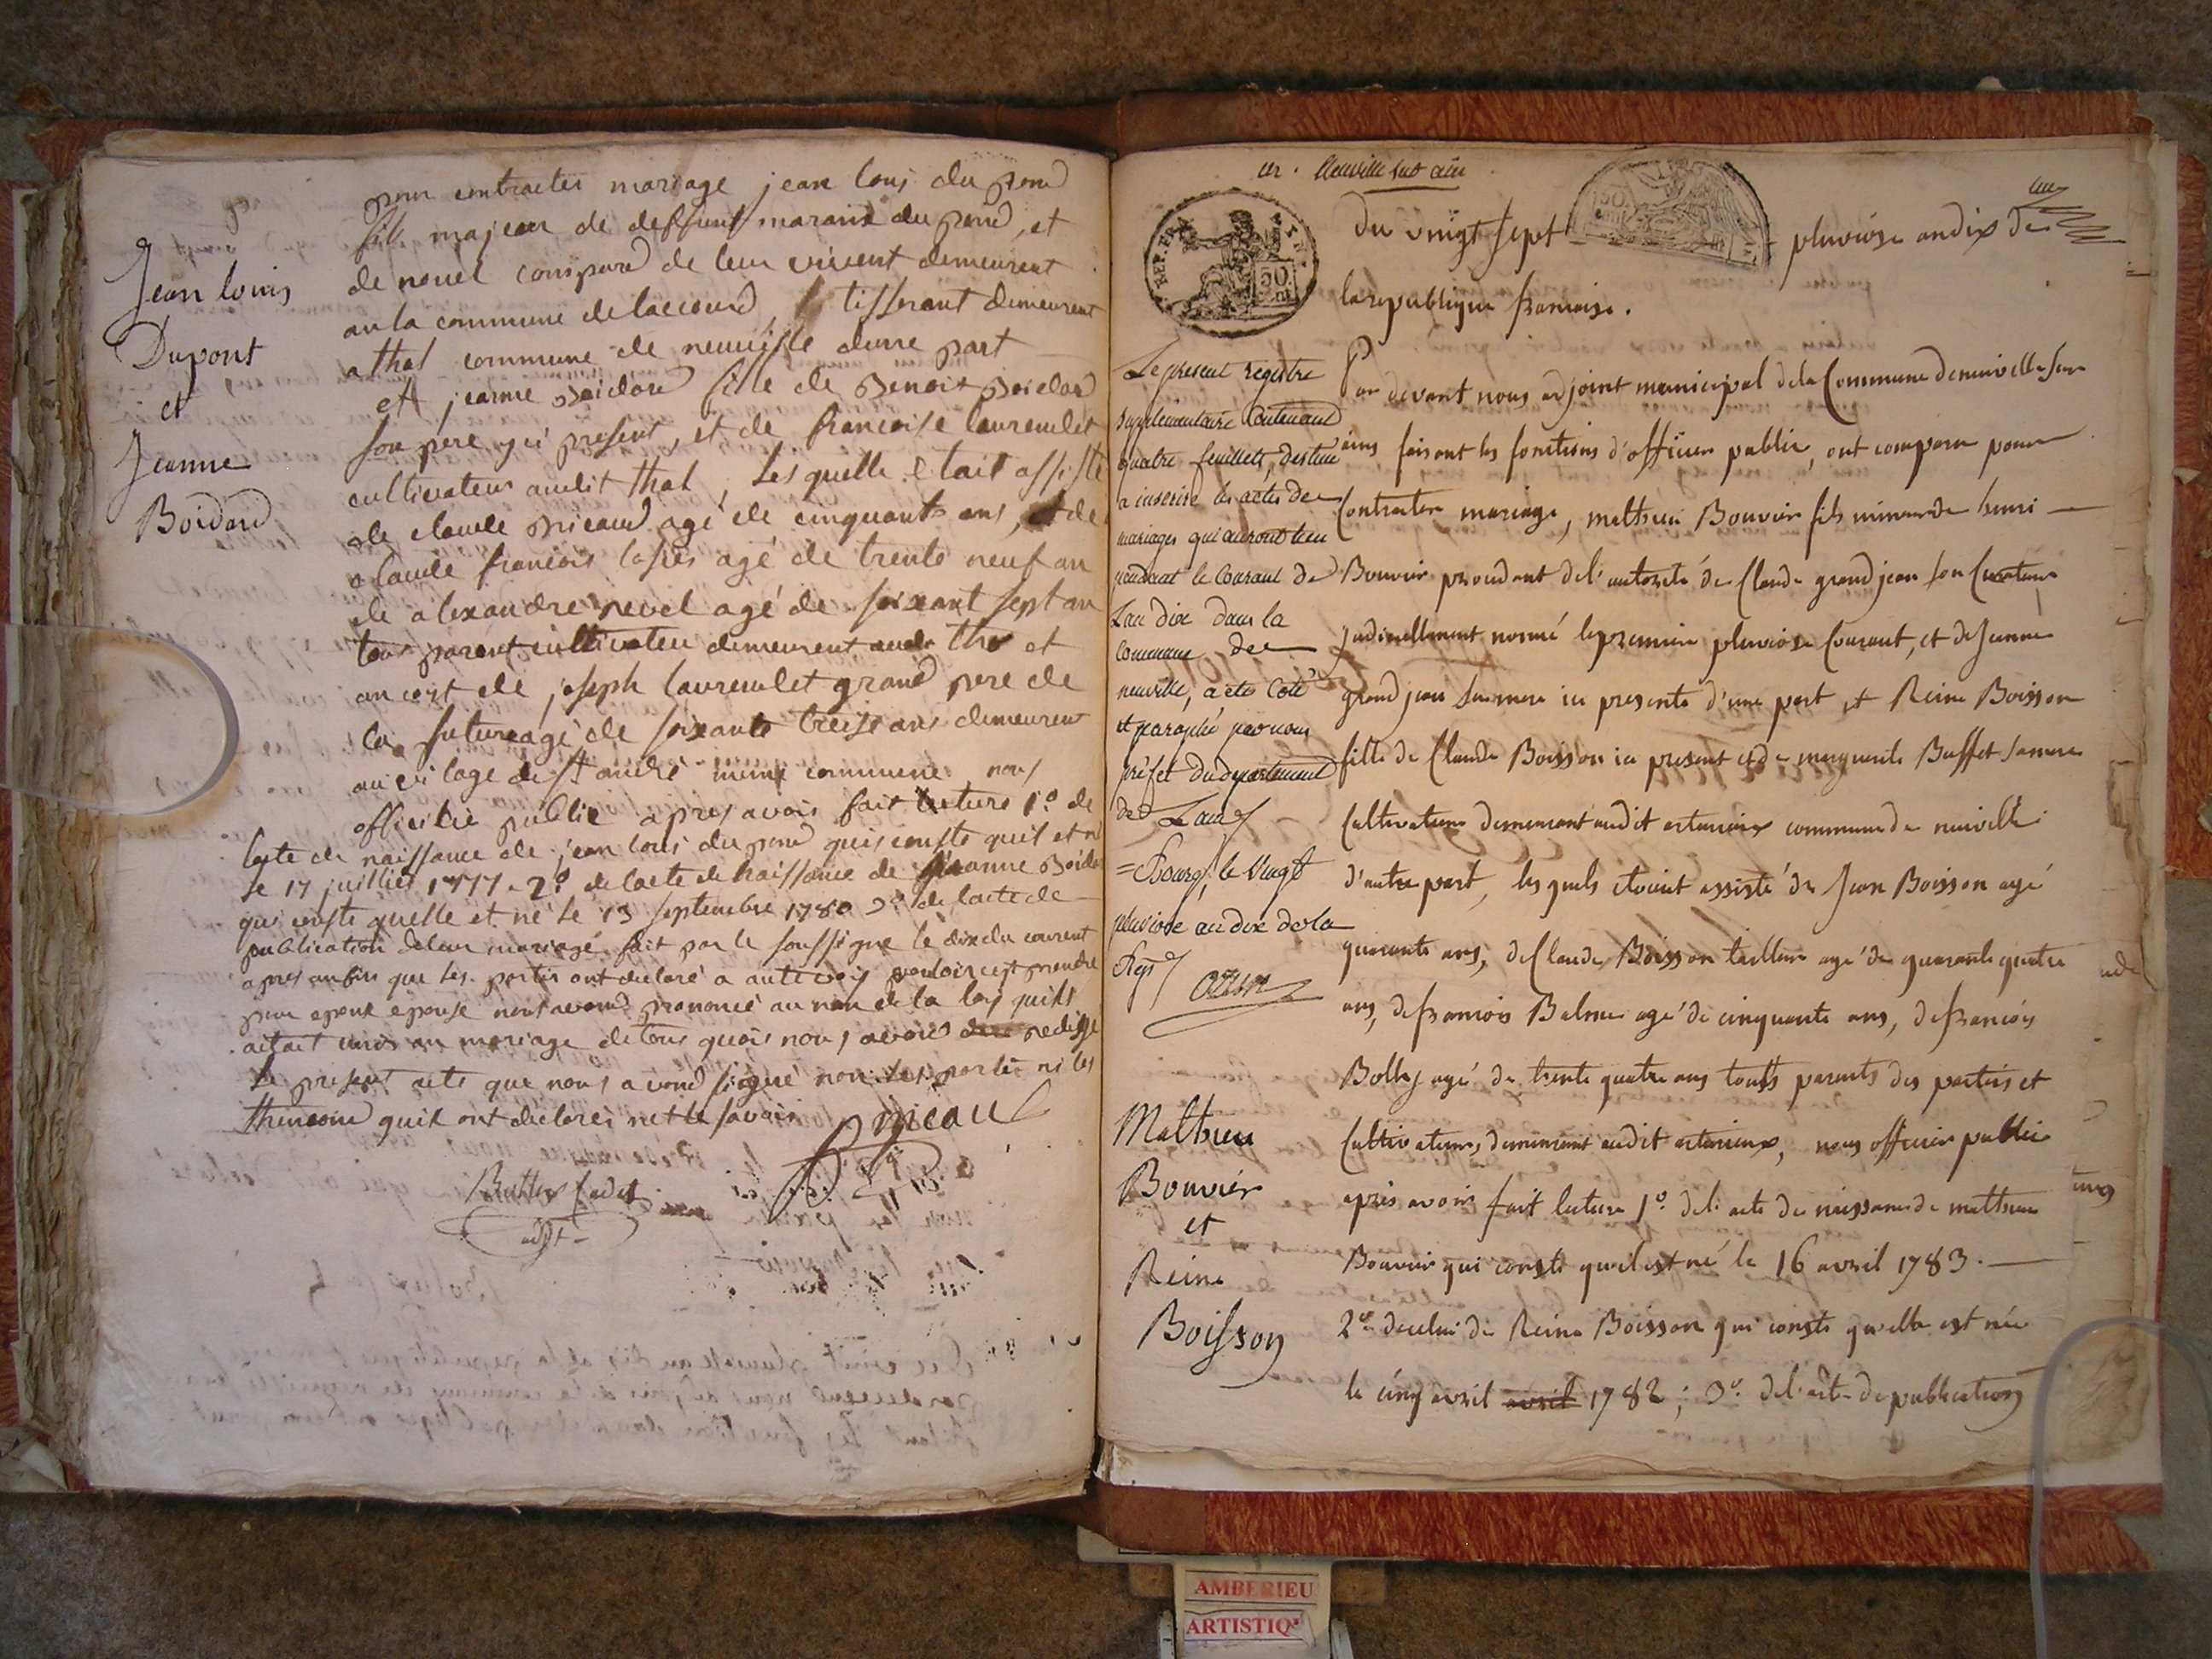 Jean louis
Dupont
et
Jeanne
Boidard
pour contracter mariage jean louis du pond
fils majeur de deffunt du pond, et
de nouel compard de leur vivent demeurent
au la commune de laccoud, tisserant demeurent
a thol commune de neuville dune part
et jeanne Boidard fille de Benoit Boidard
son pere yci present, et de francoise laurendet
cultivateur audit thol, lesquelle etait assisté
de claude Bricaud agé de cinquante ans, et de
claude francois agé de trente neuf an
de alexandre revel agé de soixant sept an
tous parent cultivateu demeurent audi tho et
de joseph laurendet grand pere de
la future agé de soixante treise ans demeurent
au vilage de st andré meme commune nous
officilie publie apres avoir fait lecture 1º de
lacte de naissance de jean louis du pond qui conste quil et né
le 17 juilliet 1777. 2º de lacte de naissance de jeanne Boida
qui conste quelle et né le 13 septembre 1780 3º de lacte de
publication de leur mariagé fait par le soussigne le dix du courent
apres aussi que les parties ont declaré a aute voix vouloir cest prendre
pour epoux epouse nous avons prononcé au non de la loy quils
etait unis au mariage de tous quois nous avons redigé
le present acte que nous avond signé non les partie ni les
themoins quil ont declarés net le savoir
Bricaud
Buttex Cadet
adjt
Neuville sur ain
REP. FRA.
50
du vingt sept pluviose an dix de
la republique francaise.
Par devant nous adjoint municipal de la Commune de neuville sur
ains faisant les fonctions d'officier public, ont comparu pour
Contracter mariage, mathieu Bouvier fils mineur de henri
Bouvier procedant de l'autorité de Claude grand jean son Curateur
judiciellement nommé le premier pluviose Courant, et de Jeanne
grand jean sa mere ici presente d'une part et Reine Boisson
fille de Claude Boisson ici present et de marguerite Buffet sa mere
Cultivateurs demeurant audit commune de neuville
d'autre part, les quels etoient assisté de Jean Boisson agé
quarante ans, de Claude Boisson tailleur agé de quarante quatre
ans, de francois Balme agé de cinquante ans, de francois
Bolley agé de trente quatre ans touts parents des parties et
Cultivateurs, demeurant audit, nous officier public
apres avoir fait lecture 1º de l'acte de naissance de mathieu
Bouvier qui conste quil est né le 16 avril 1783.
2º de celui de Reine Boisson qui conste quelle est née
le cinq avril avril 1782; 3º de l'acte de publication
Le present registre
supplementaire Contenant
quatre feuillets, destiné
a inscrire les actes de
mariages qui auront lieu
pendant le Courant de
L'an dix dans la
Commune de
neuville, a eté Coté
et paraphé par nous
préfet du departement
de L'ain
Bourg, le vingt
pluviose an dix de la
Rep
Mathieu
Bouvier
et
Reine
Boisson
AMBERIEU
ARTISTIQ